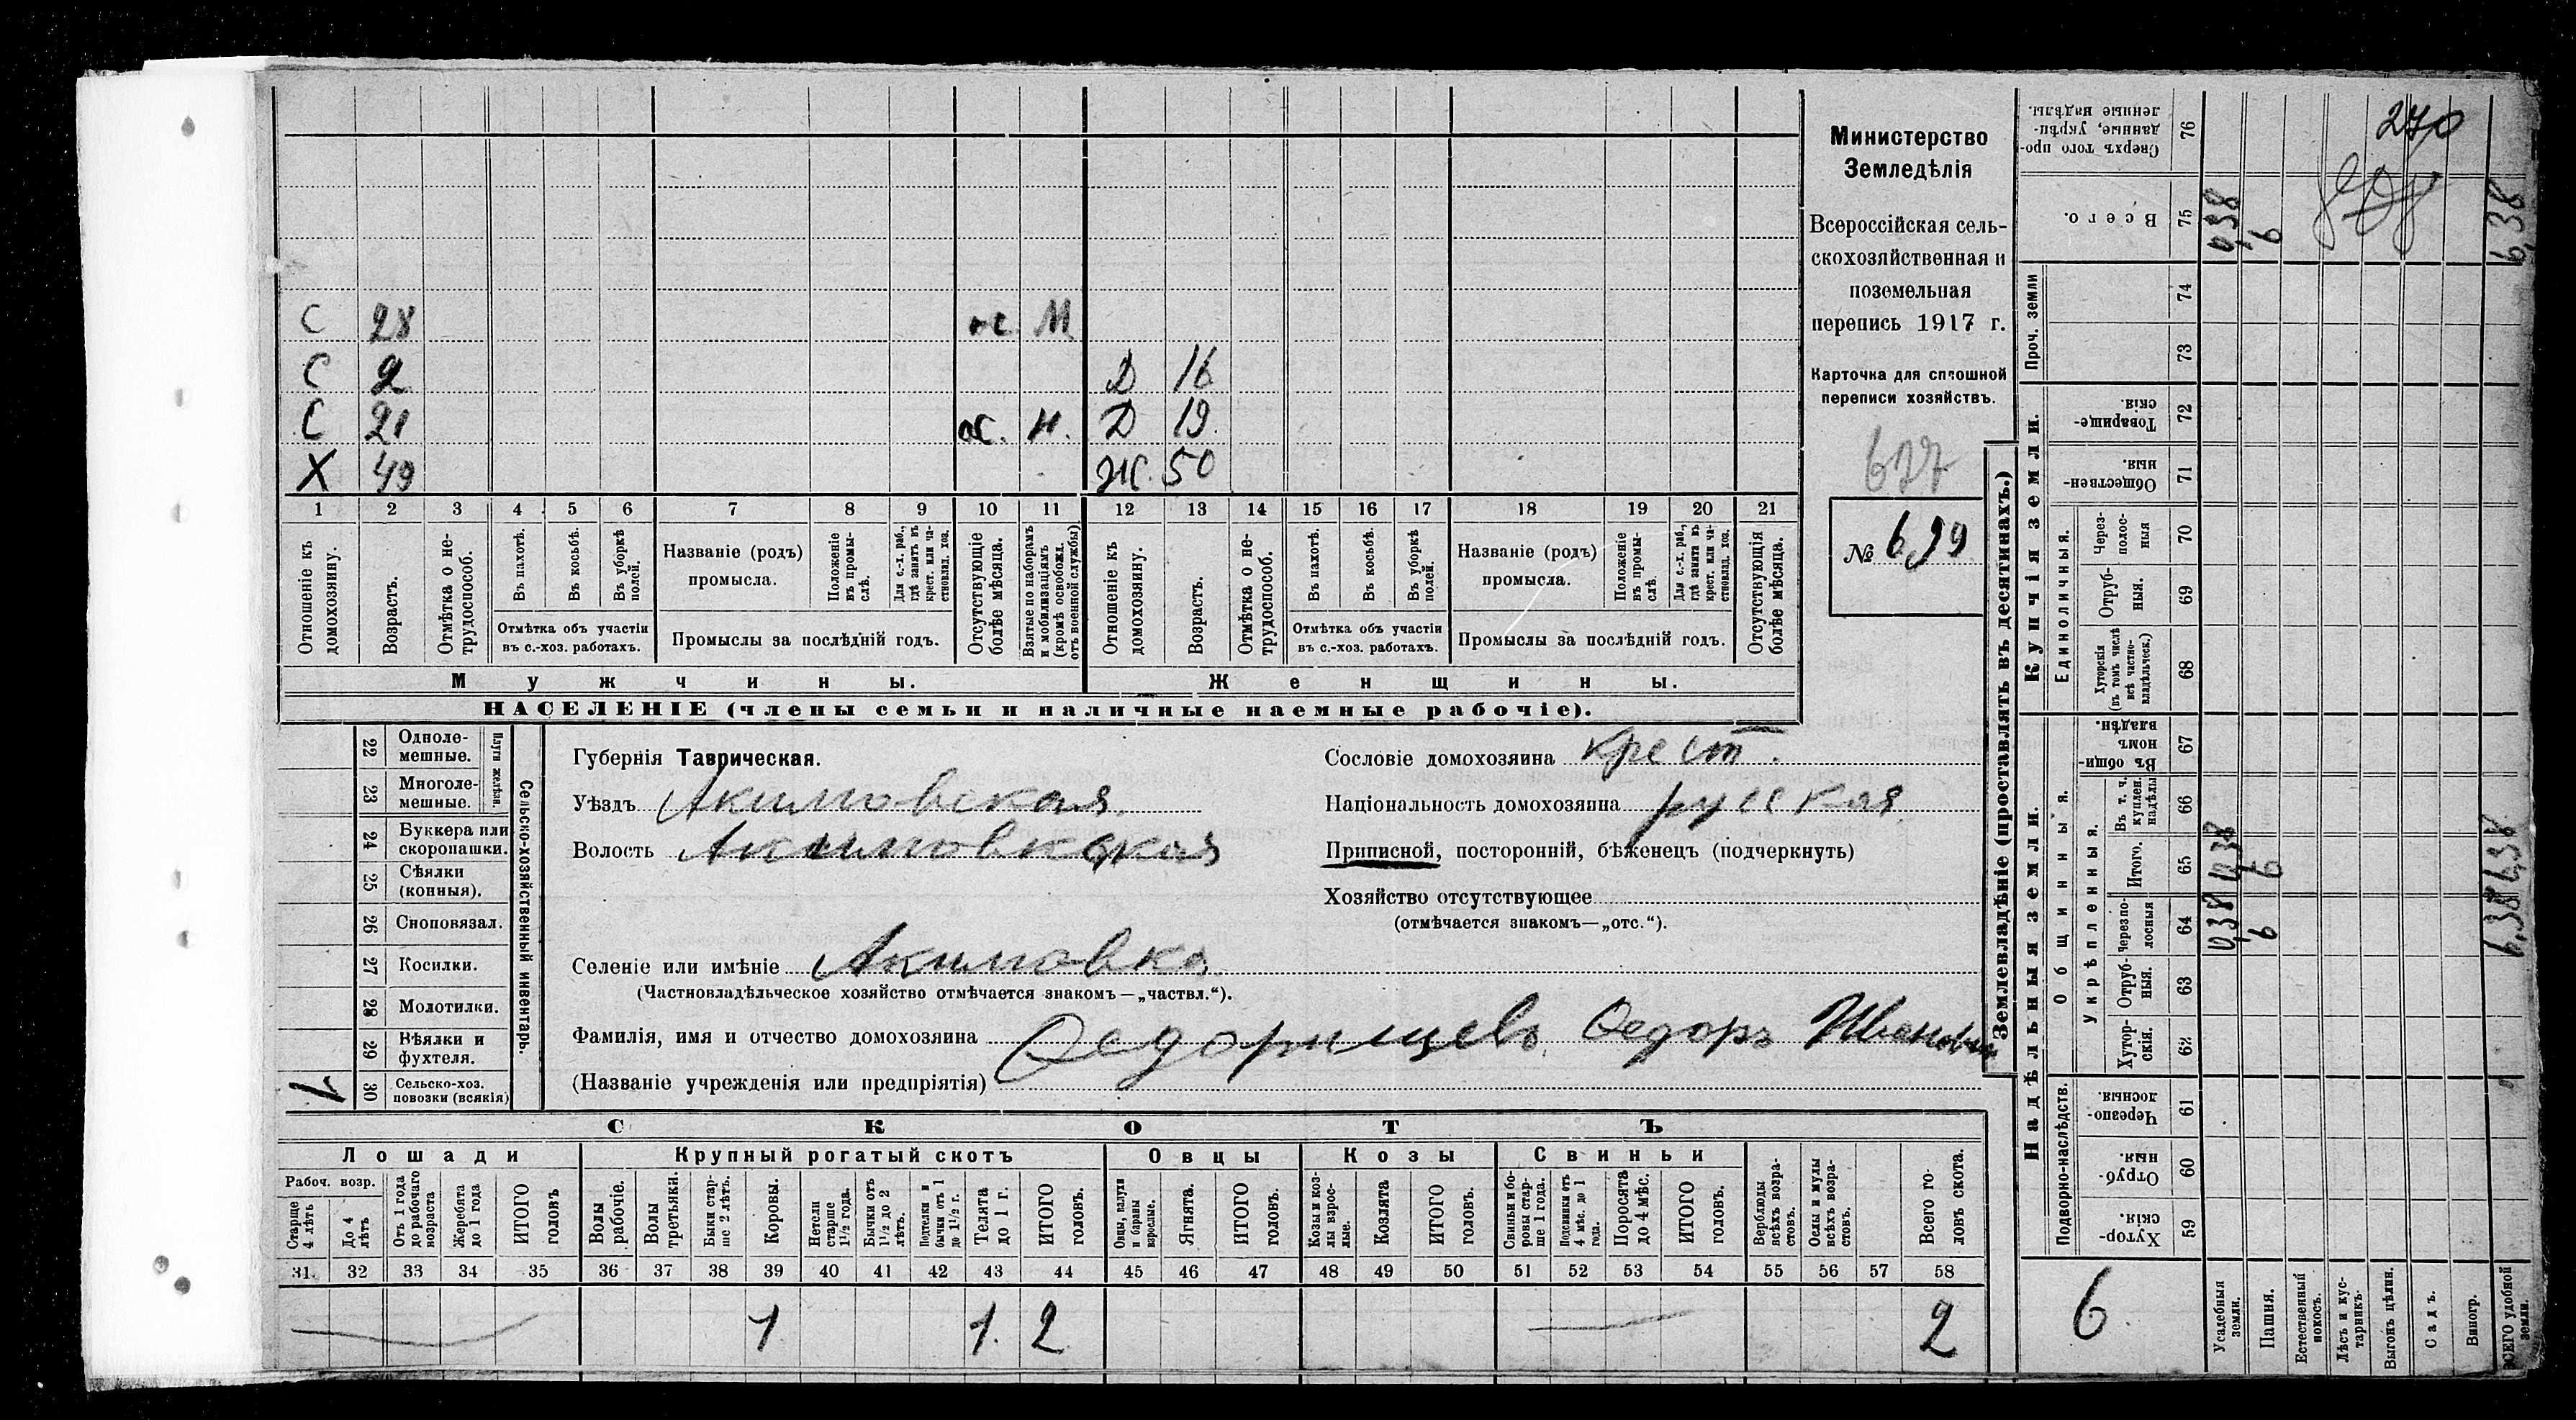 С 28 ос М
С 2 Д 16
С 21 ос. н. Д 19.
Х 49 Ж. 50
1 2 3 4 5 6 7 8 9 10 11 12 13 14 15 16 17 18 19 20 21
Отношеніе къ домохозяину.
Возрастъ.
Отмѣтка о не-
трудоспособ.
Въ пахотѣ.
Въ косьбѣ.
Въ уборкѣ полей.
Отмѣтка объ участіи
въ с.-хоз. работахъ.
Названіе (родъ)
промысла.
Положеніе въ промы-
слѣ.
Для с.-х. раб.,
гдѣ занятъ въ
крест. или ча-
стновлад. хоз.
Промыслы за послѣдній годъ.
Отсутствующіе
болѣе мѣсяца.
Взятые по наборамъ
и мобилизаціямъ
(кромѣ освобожд.
отъ военной службы)
Отношеніе къ
домохозяину.
Возрастъ.
Отмѣтка о не-
трудоспособ.
Въ пахотѣ.
Въ косьбѣ.
Въ уборкѣ
полей.
Отмѣтка объ участіи
въ с.-хоз. работахъ.
Названіе (родъ)
промысла.
Положеніе
въ промы-
слѣ.
Для с.-х. раб.,
гдѣ занята въ
крест. или ча-
стновлад. хоз.
Промыслы за послѣдній годъ.
Отсутствующія
болѣе мѣсяца.
Мужчины.
Женщины.
НАСЕЛЕНІЕ (члены семьи и наличные наемные рабочіе).
Министерство
Земледѣлія
Всероссійская сель-
скохозяйственная и
поземельная
перепись 1917 г.
Карточка для сплошной
переписи хозяйствъ.
627
№ 699
22 Одноле-
мешные.
23 Многоле-
мешные.
Плуги желѣзн.
24 Буккера или
скоропашки.
25 Сѣялки
(конныя).
26 Сноповязал.
27 Косилки.
28 Молотилки.
29 Вѣялки и
фухтеля.
1 30 Сельско-хоз.
повозки (всякія)
Сельско-хозяйственный инвентарь.
Губернія Таврическая.
Уѣздъ Акимовская
Волость Акимовская
Селеніе или имѣніе Акимовка
(Частновладѣльческое хозяйство отмѣчается знакомъ—„частвл.“).
Фамилія, имя и отчество домохозяина Ѳедорищевъ Ѳедоръ Иванович
(Названіе учрежденія или предпріятія)
Сословіе домохозяина крест.
Національность домохозяина русская
Приписной, посторонній, бѣженецъ (подчеркнуть)
Хозяйство отсутствующее
(отмѣчается знакомъ—„отс.“).
СКОТЪ
Лошади
Крупный рогатый скотъ
Овцы
Козы
Свиньи
Рабоч. возр.
Старше
4 лѣтъ
До 4
лѣтъ
Отъ 1 года
до рабочаго
возраста
Жеребята
до 1 года
ИТОГО
головъ
Волы
рабочіе.
Волы
третьяки.
Быки стар-
ше 2 лѣтъ.
Коровы.
Нетели
старше
1½ года.
Бычки отъ
1½ до 2
лѣтъ.
Подтелки и
бычки отъ 1
до 1½ г.
Телята
до 1 г.
ИТОГО
головъ.
Овцы, валухи
и бараны
взрослые.
Ягнята.
ИТОГО
головъ.
Козы и коз-
лы взрос-
лые.
Козлята
ИТОГО
головъ.
Свиньи и бо-
ровы стар-
ше 1 года.
Подсвинки отъ
4 мѣс. до 1
года.
Поросята
до 4 мѣс.
ИТОГО
головъ.
Верблюды
всѣхъ возра-
стовъ.
Ослы и мулы
всѣхъ возра-
стовъ.
Всего го-
ловъ скота.
31. 32 33 34 35 36 37 38 39 40 41 42 43 44 45 46 47 48 49 50 51 52 53 54 55 56 57 58
1 1. 2 2
Землевладѣніе (проставлять въ десятинахъ.)
Надѣльныя земли.
Купчія земли.
Проч. земли
Подворно-наслѣдств.
Общинныя.
Укрѣпленныя.
Единоличныя.
Сверхъ того про-
данные, укрѣп-
ленные надѣлы.
76
Всего.
75
74
73
Товарище-
скія.
72
Обществен-
ныя.
71
Через-
полос-
ныя
70
Отруб-
ныя.
69
Хуторскія
(въ томъ числѣ
всѣ частно-
владѣльческ.)
68
Въ общин-
номъ
владѣн.
67
Въ т. ч.
куплен.
надѣлы
66
Итого.
65
Черезпо-
лосныя
64
Отруб-
ныя.
63
Хутор-
скія.
62
Черезпо-
лосныя.
61
Отруб-
ныя.
60
Хутор-
скія.
59
270
0,38
6
6,38
0,38
6
6,38
0,38
6
6,38
6
Усадебныя
земли.
Пашня.
Естественный
покосъ.
Лѣсъ и кус-
тарникъ.
Выгонъ цѣлин.
Садъ.
Виногр.
ВСЕГО удобной
земли.